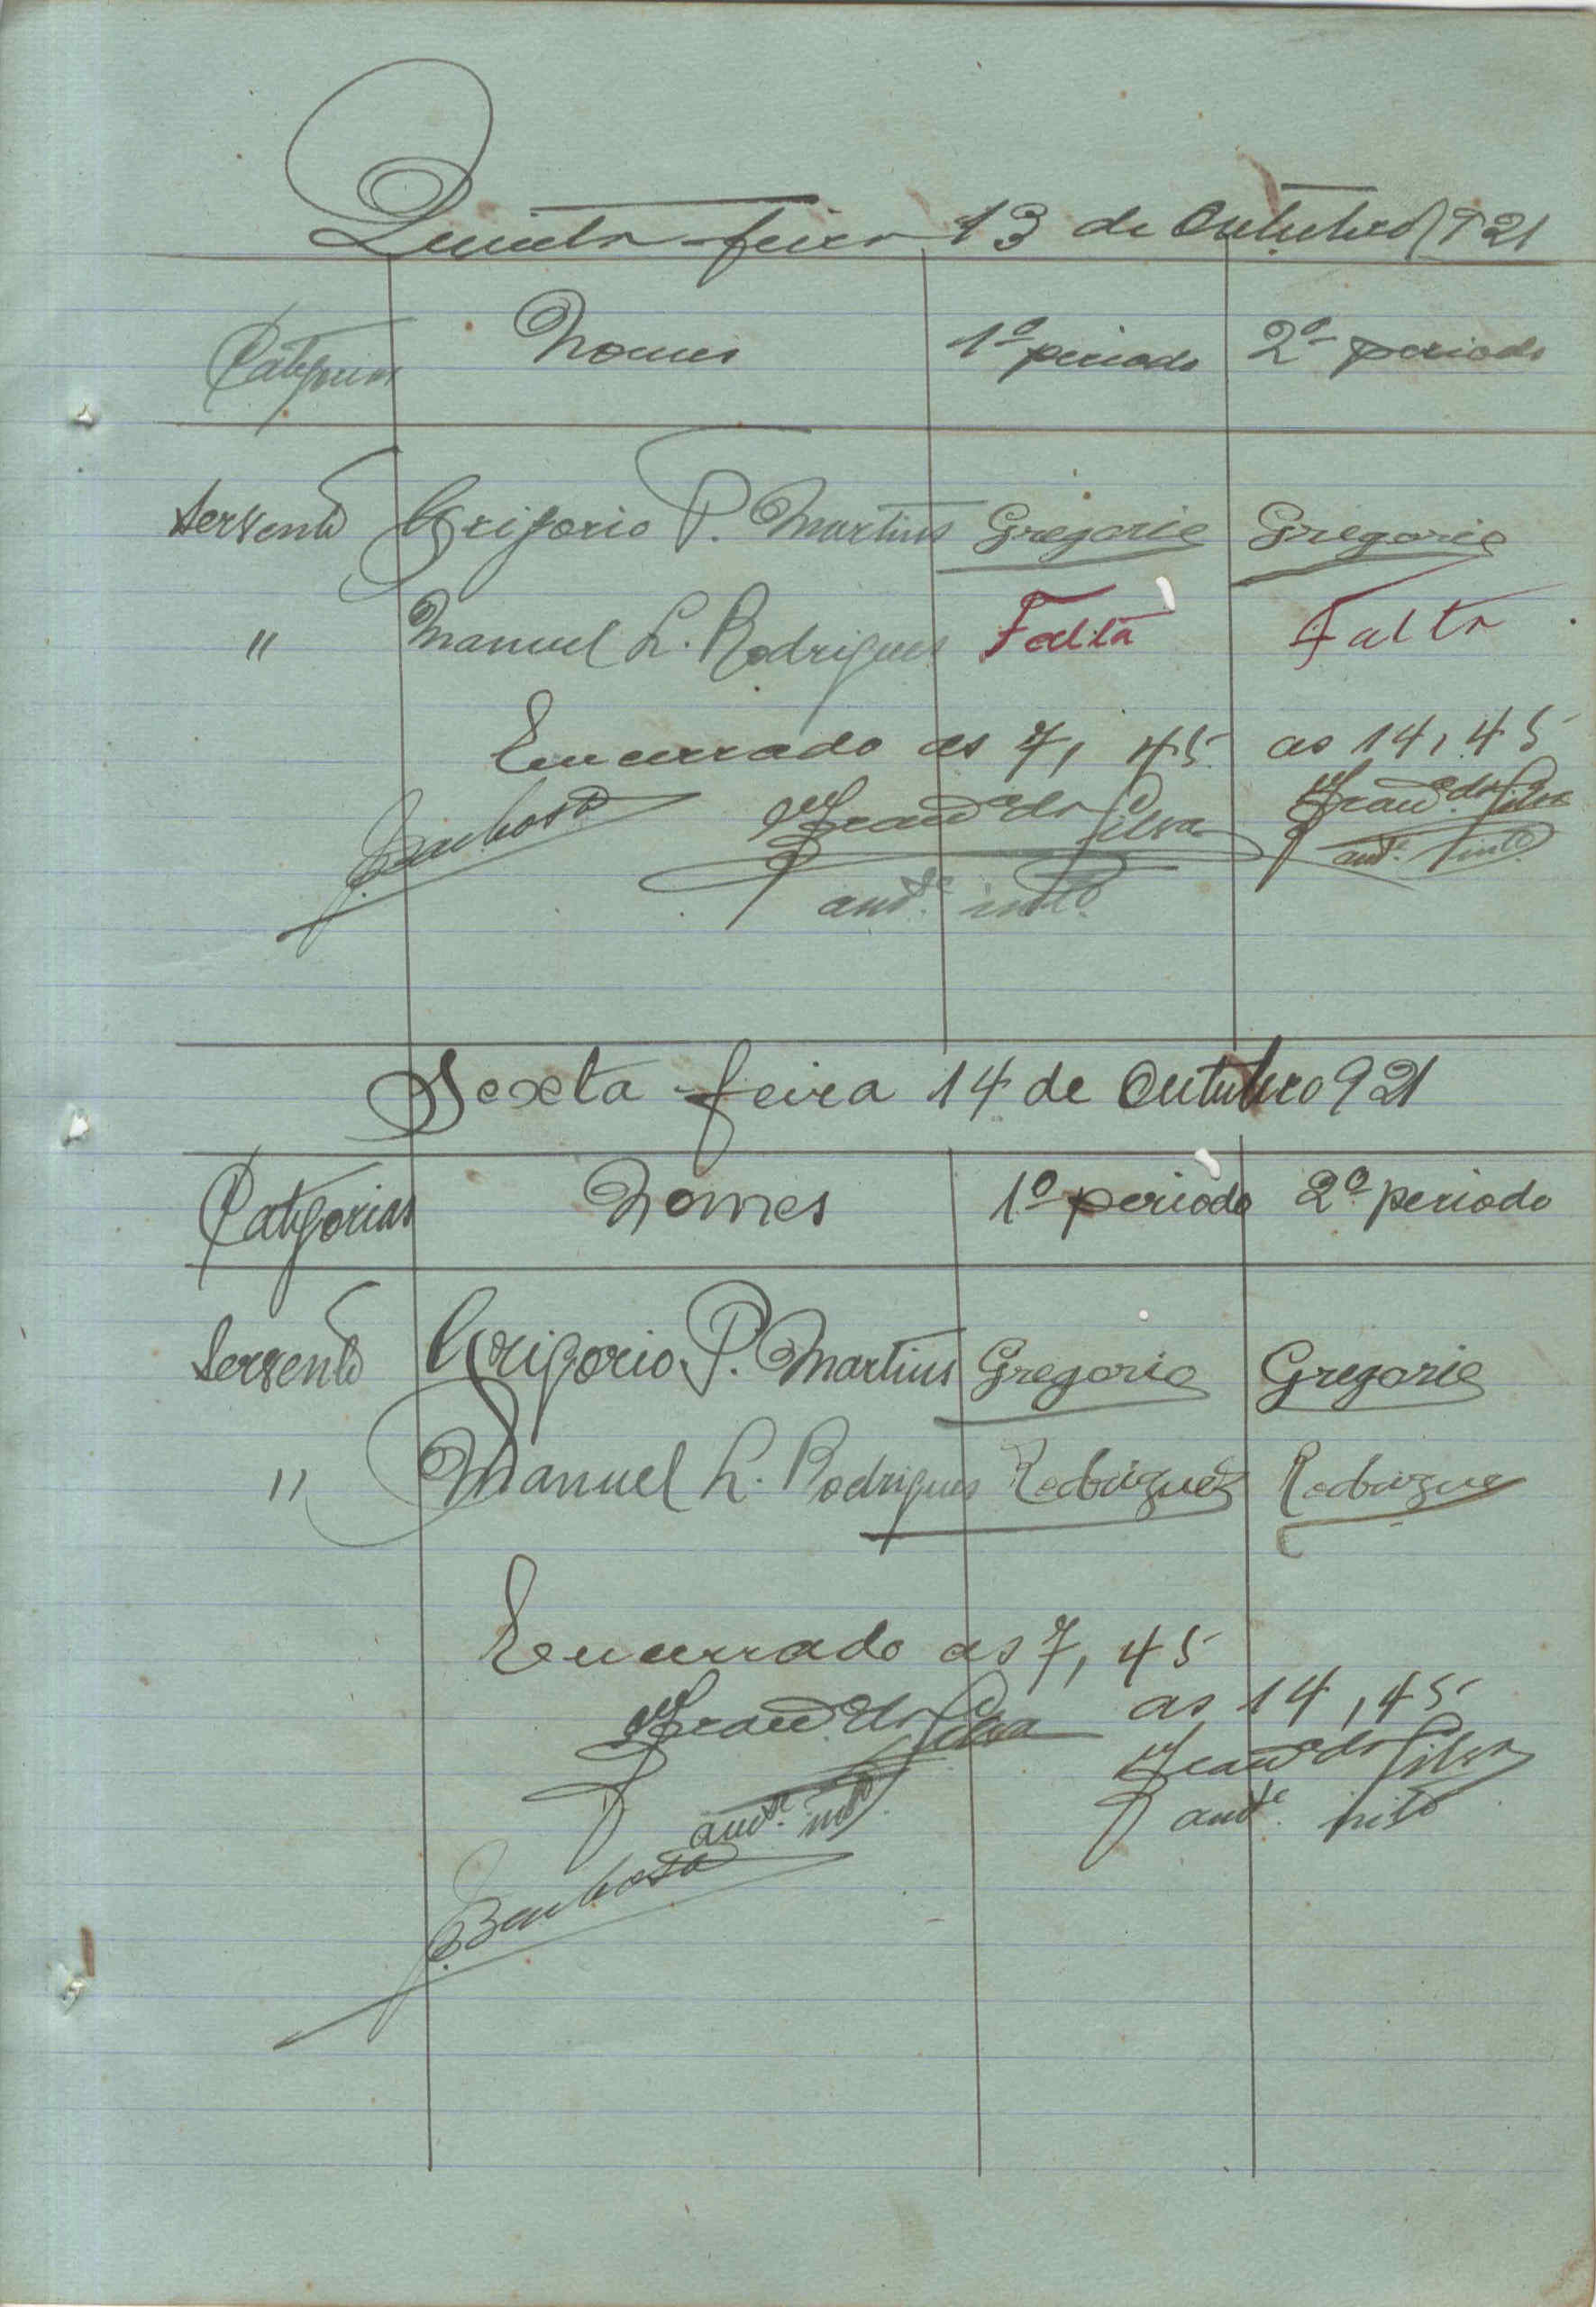 Quinta feira 13 de Outubro 921
Categorias Nomes 1º periodo 2º periodo
Servente Grigorio P. Martins Gregorio Gregorio
" Manuel L. Rodrigues Falta Falta
Encerrado as 7, 45 as 14, 45
Barbosa Franco da Silva Franco da Silva
Sexta feira 14 de Outubro 921
Categorias Nomes 1º periodo 2º periodo
Servente Grigorio P. Martins Gregorio Gregorio
" Manuel L. Rodrigues Rodriguez Rodrigue
Encerrado as 7, 45
as 14, 45
Silva Silva
Barbosa